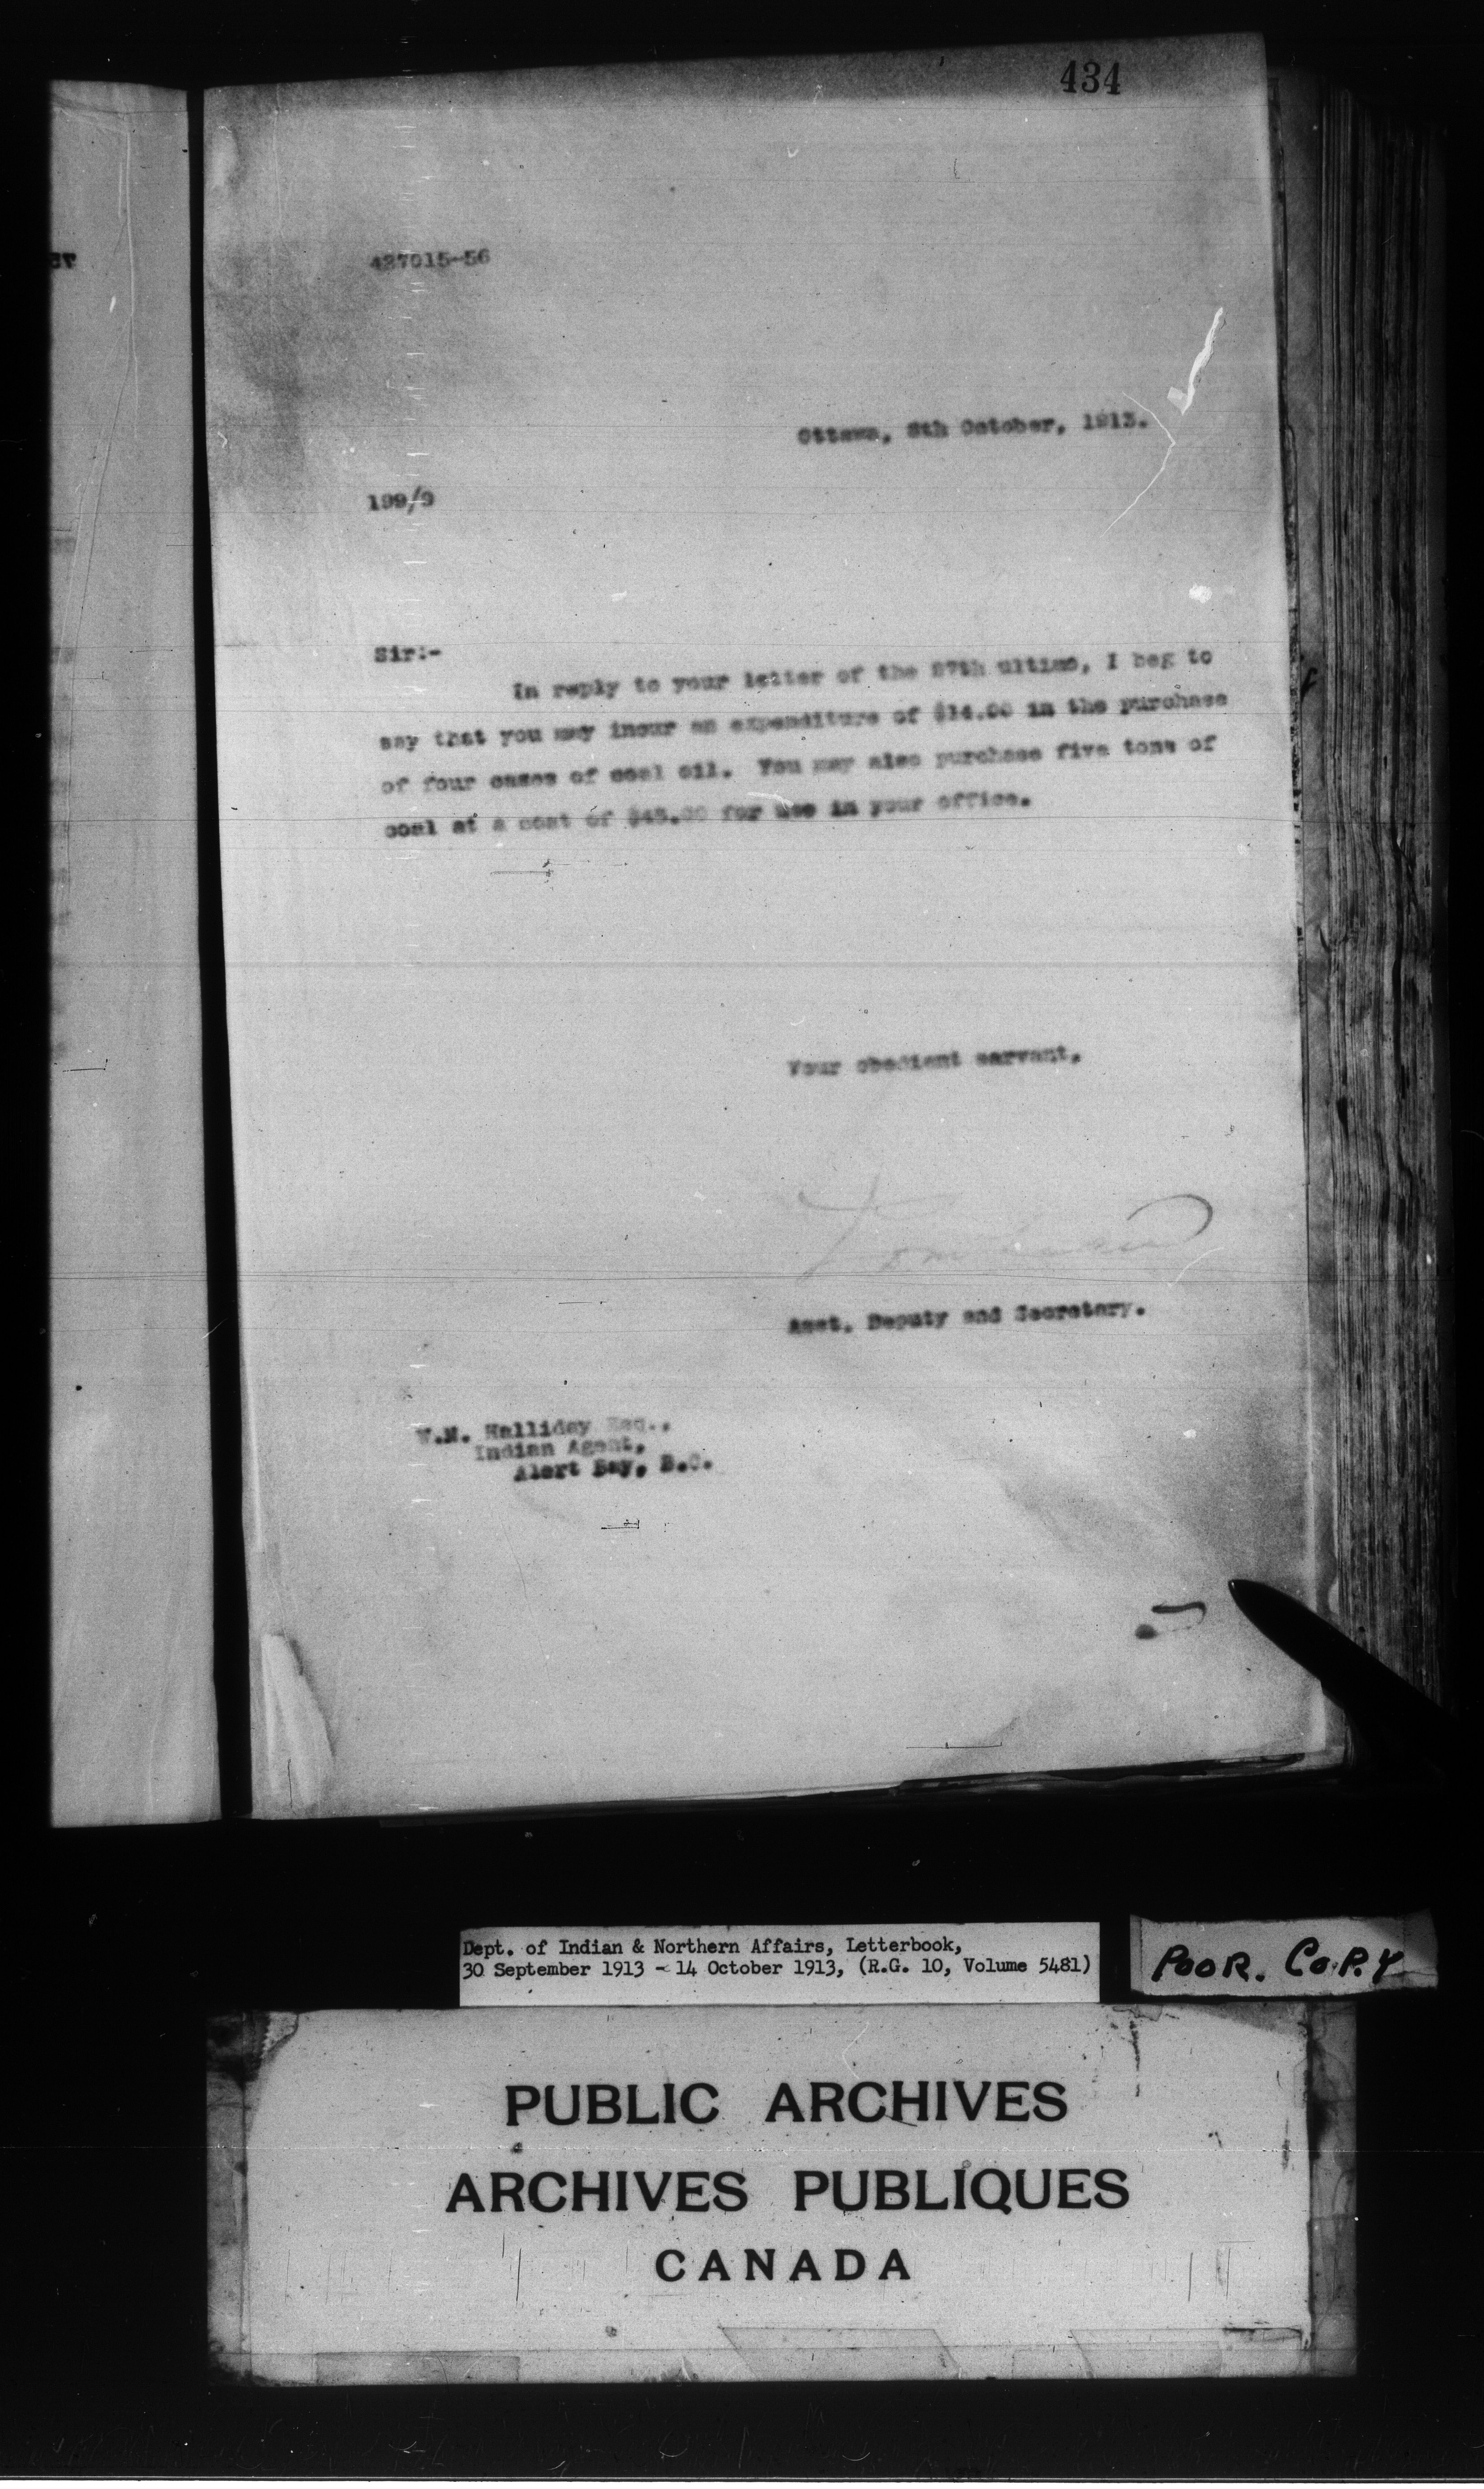 434
427015-56
Ottawa, 8th October, 1913.
199/9
Sir:-
In reply to your letter of the 27th ultimo, I beg to
say that you may incur an expenditure of $14.00 in the purchase
of four cases of coal oil. You may also purchase five tons of
coal at a cost of $45.00 for use in your office.
Your obedient servant,
Asst. Deputy and Secretary.
W.M. Halliday Esq.,
Indian Agent,
Alert Bay, B.C.
Dept. of Indian & Northern Affairs, Letterbook,
30 September 1913 - 14 October 1913, (R.G. 10, Volume 5481)
POOR. COPY
PUBLIC ARCHIVES
ARCHIVES PUBLIQUES
CANADA